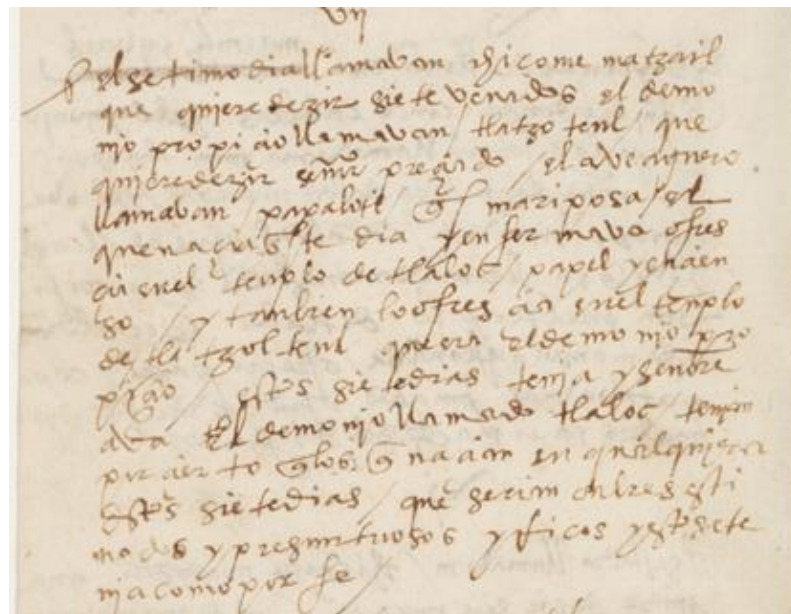 vij
el setimo dia llamavan chicome matzatl
que quiere dezir siete venados el demo
njo propicio llamavan / tlatzo teutl / que
quiere dezir señor preçiado / el ave aguero
llamavan / papalotl / q̃ mariposa / el
que nacia este dia y enfermava ofres
cia en el templo de tlaloc / papel y encien
so / y tanbien lo ofres cia en el templo
de tla tzol teutl que era el demonjo pro
picio / estos siete dias tenja y señore
ava El demonjo llamado tlaloc / tenjan
por cierto q̃ los q̃ nacian en qualqujera
destos siete dias / que serian onbres esti
mados y presuntuosos y ricos y esto se te
nja como por fe /